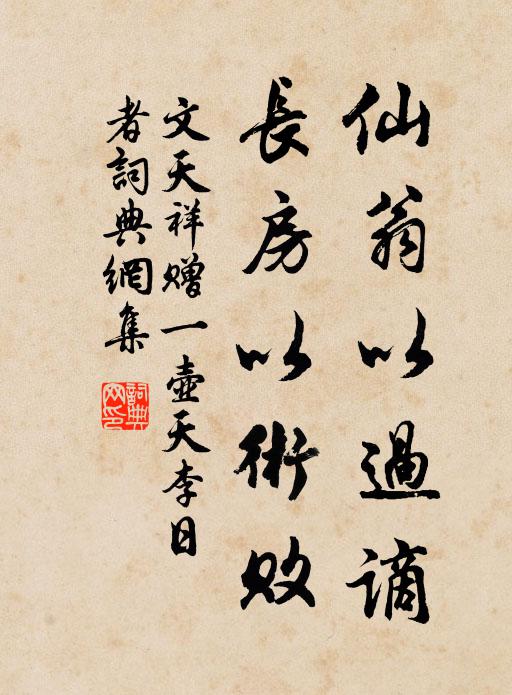 仙翁以過謫
長房以術敗
文天祥贈一壺天李日
者詞典網集
詞典网印